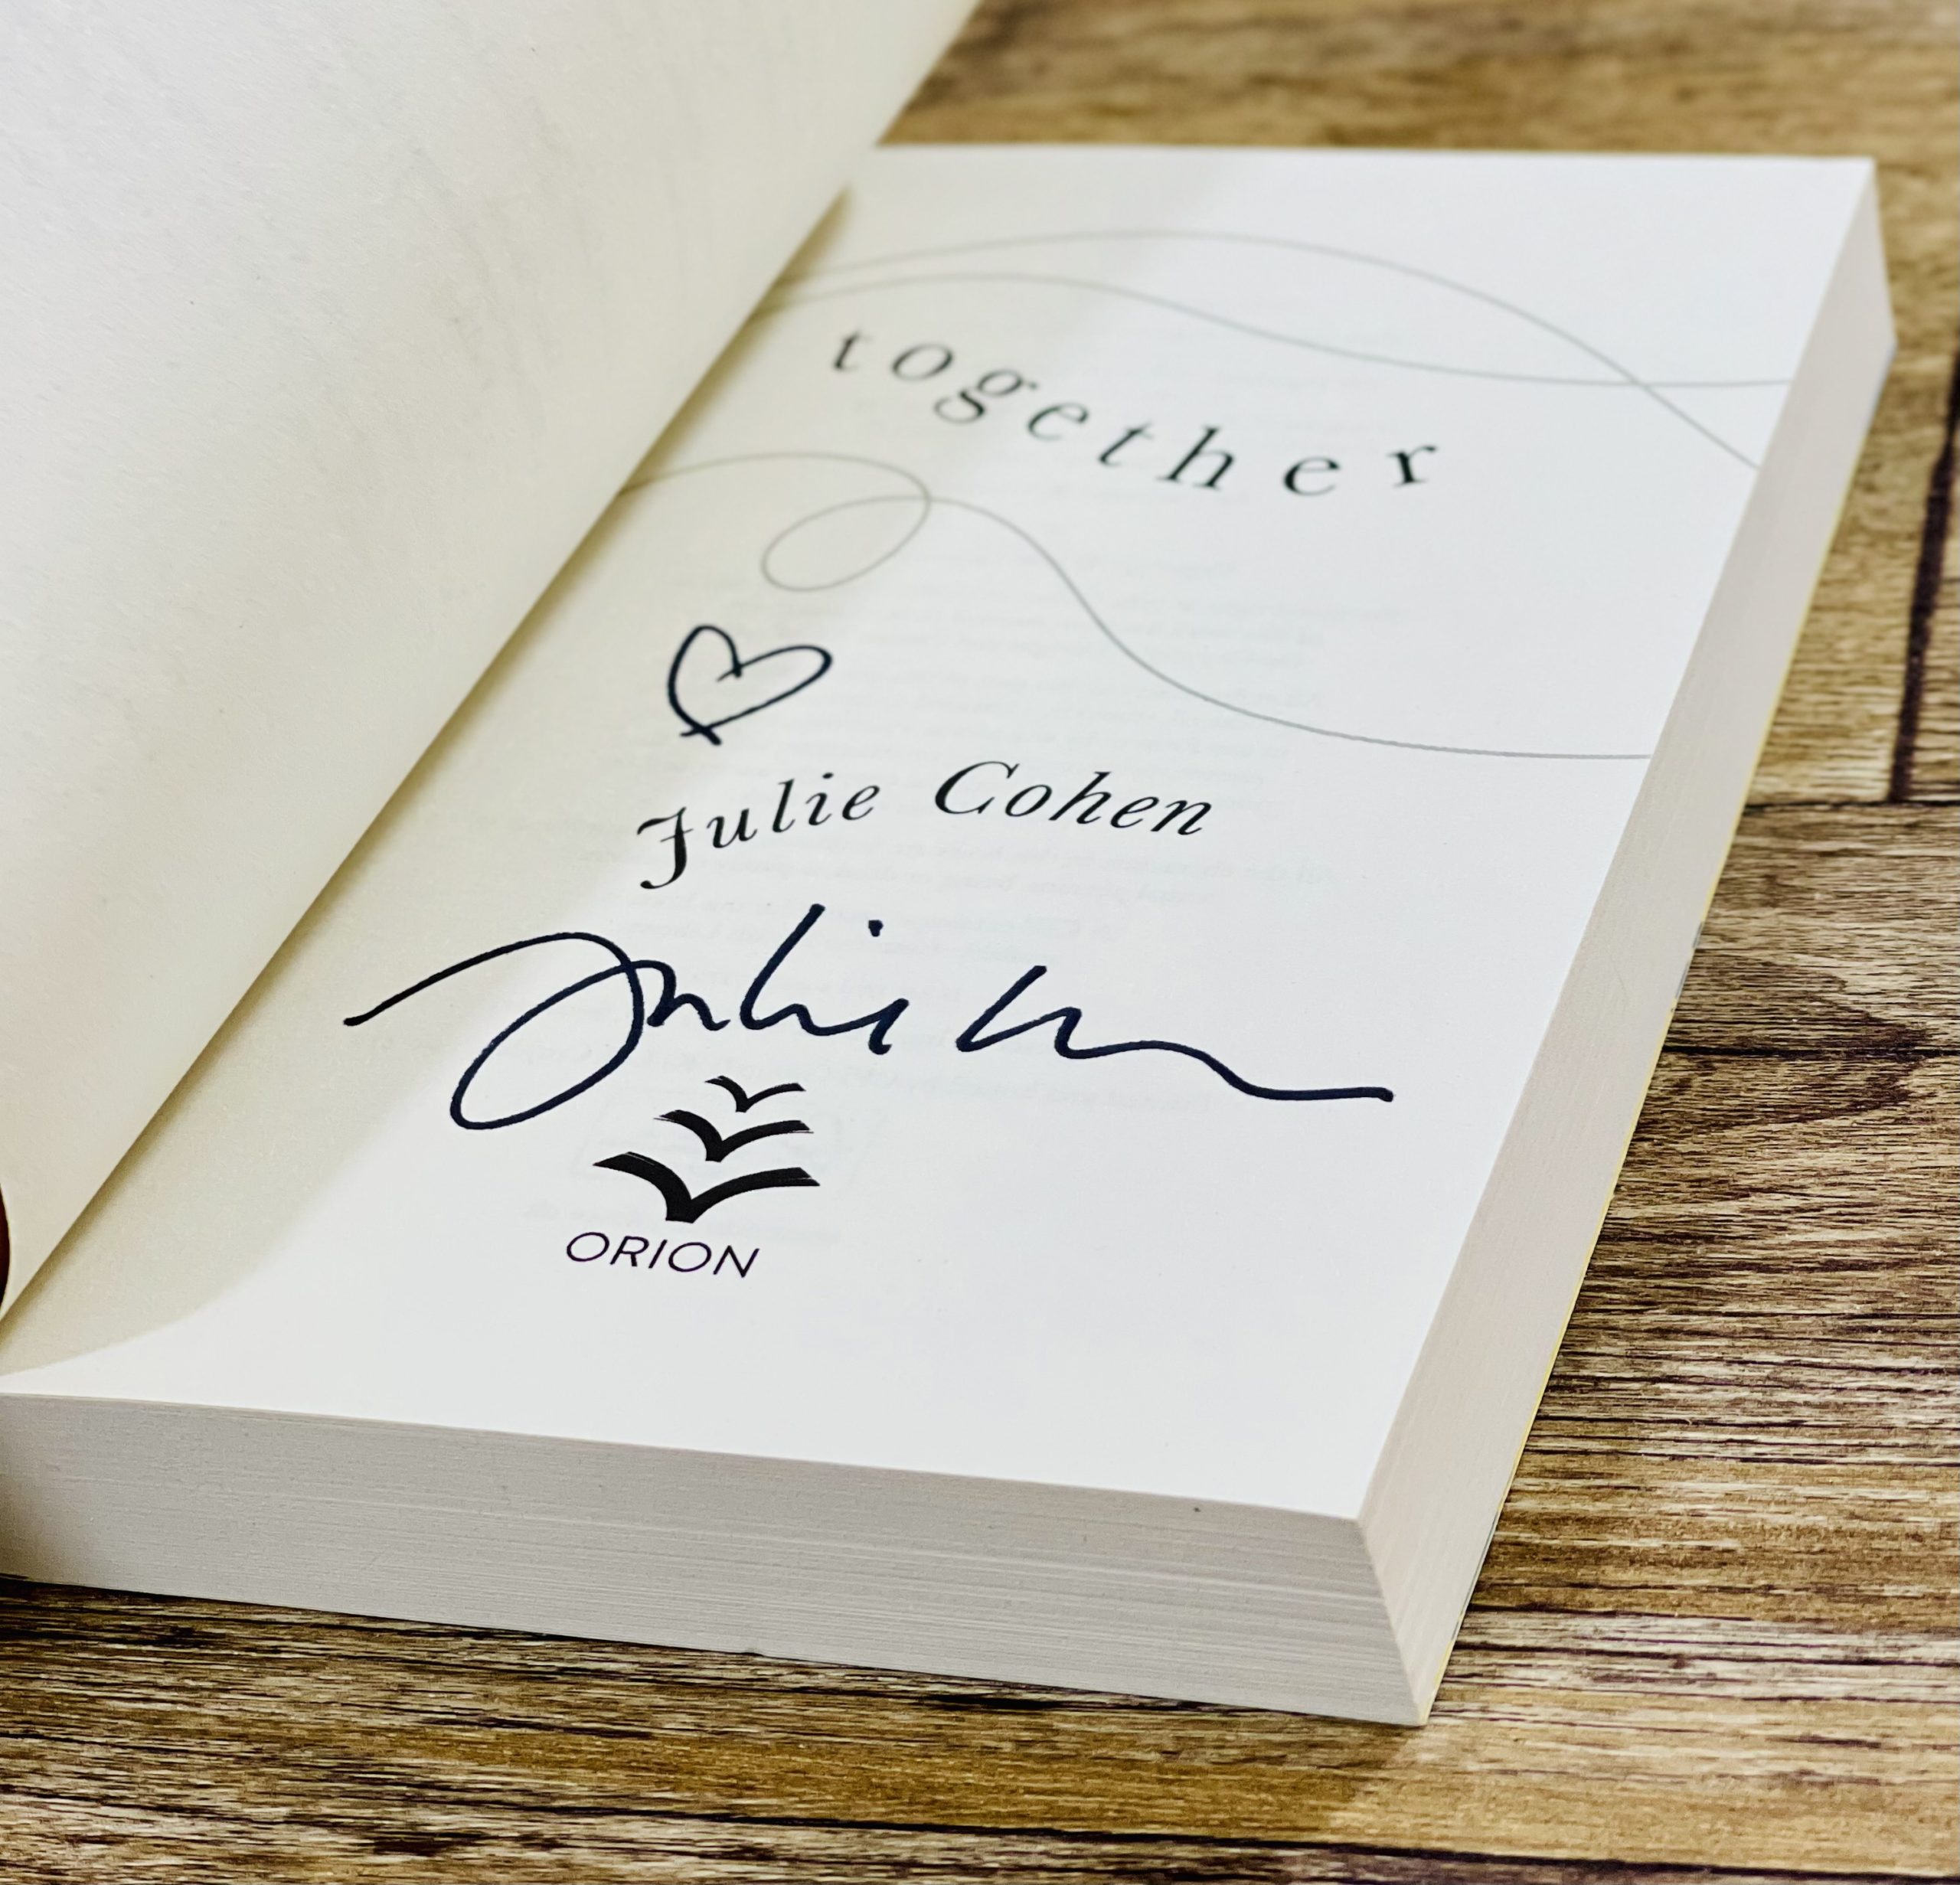 together
Julie Cohen
Julie
ORION